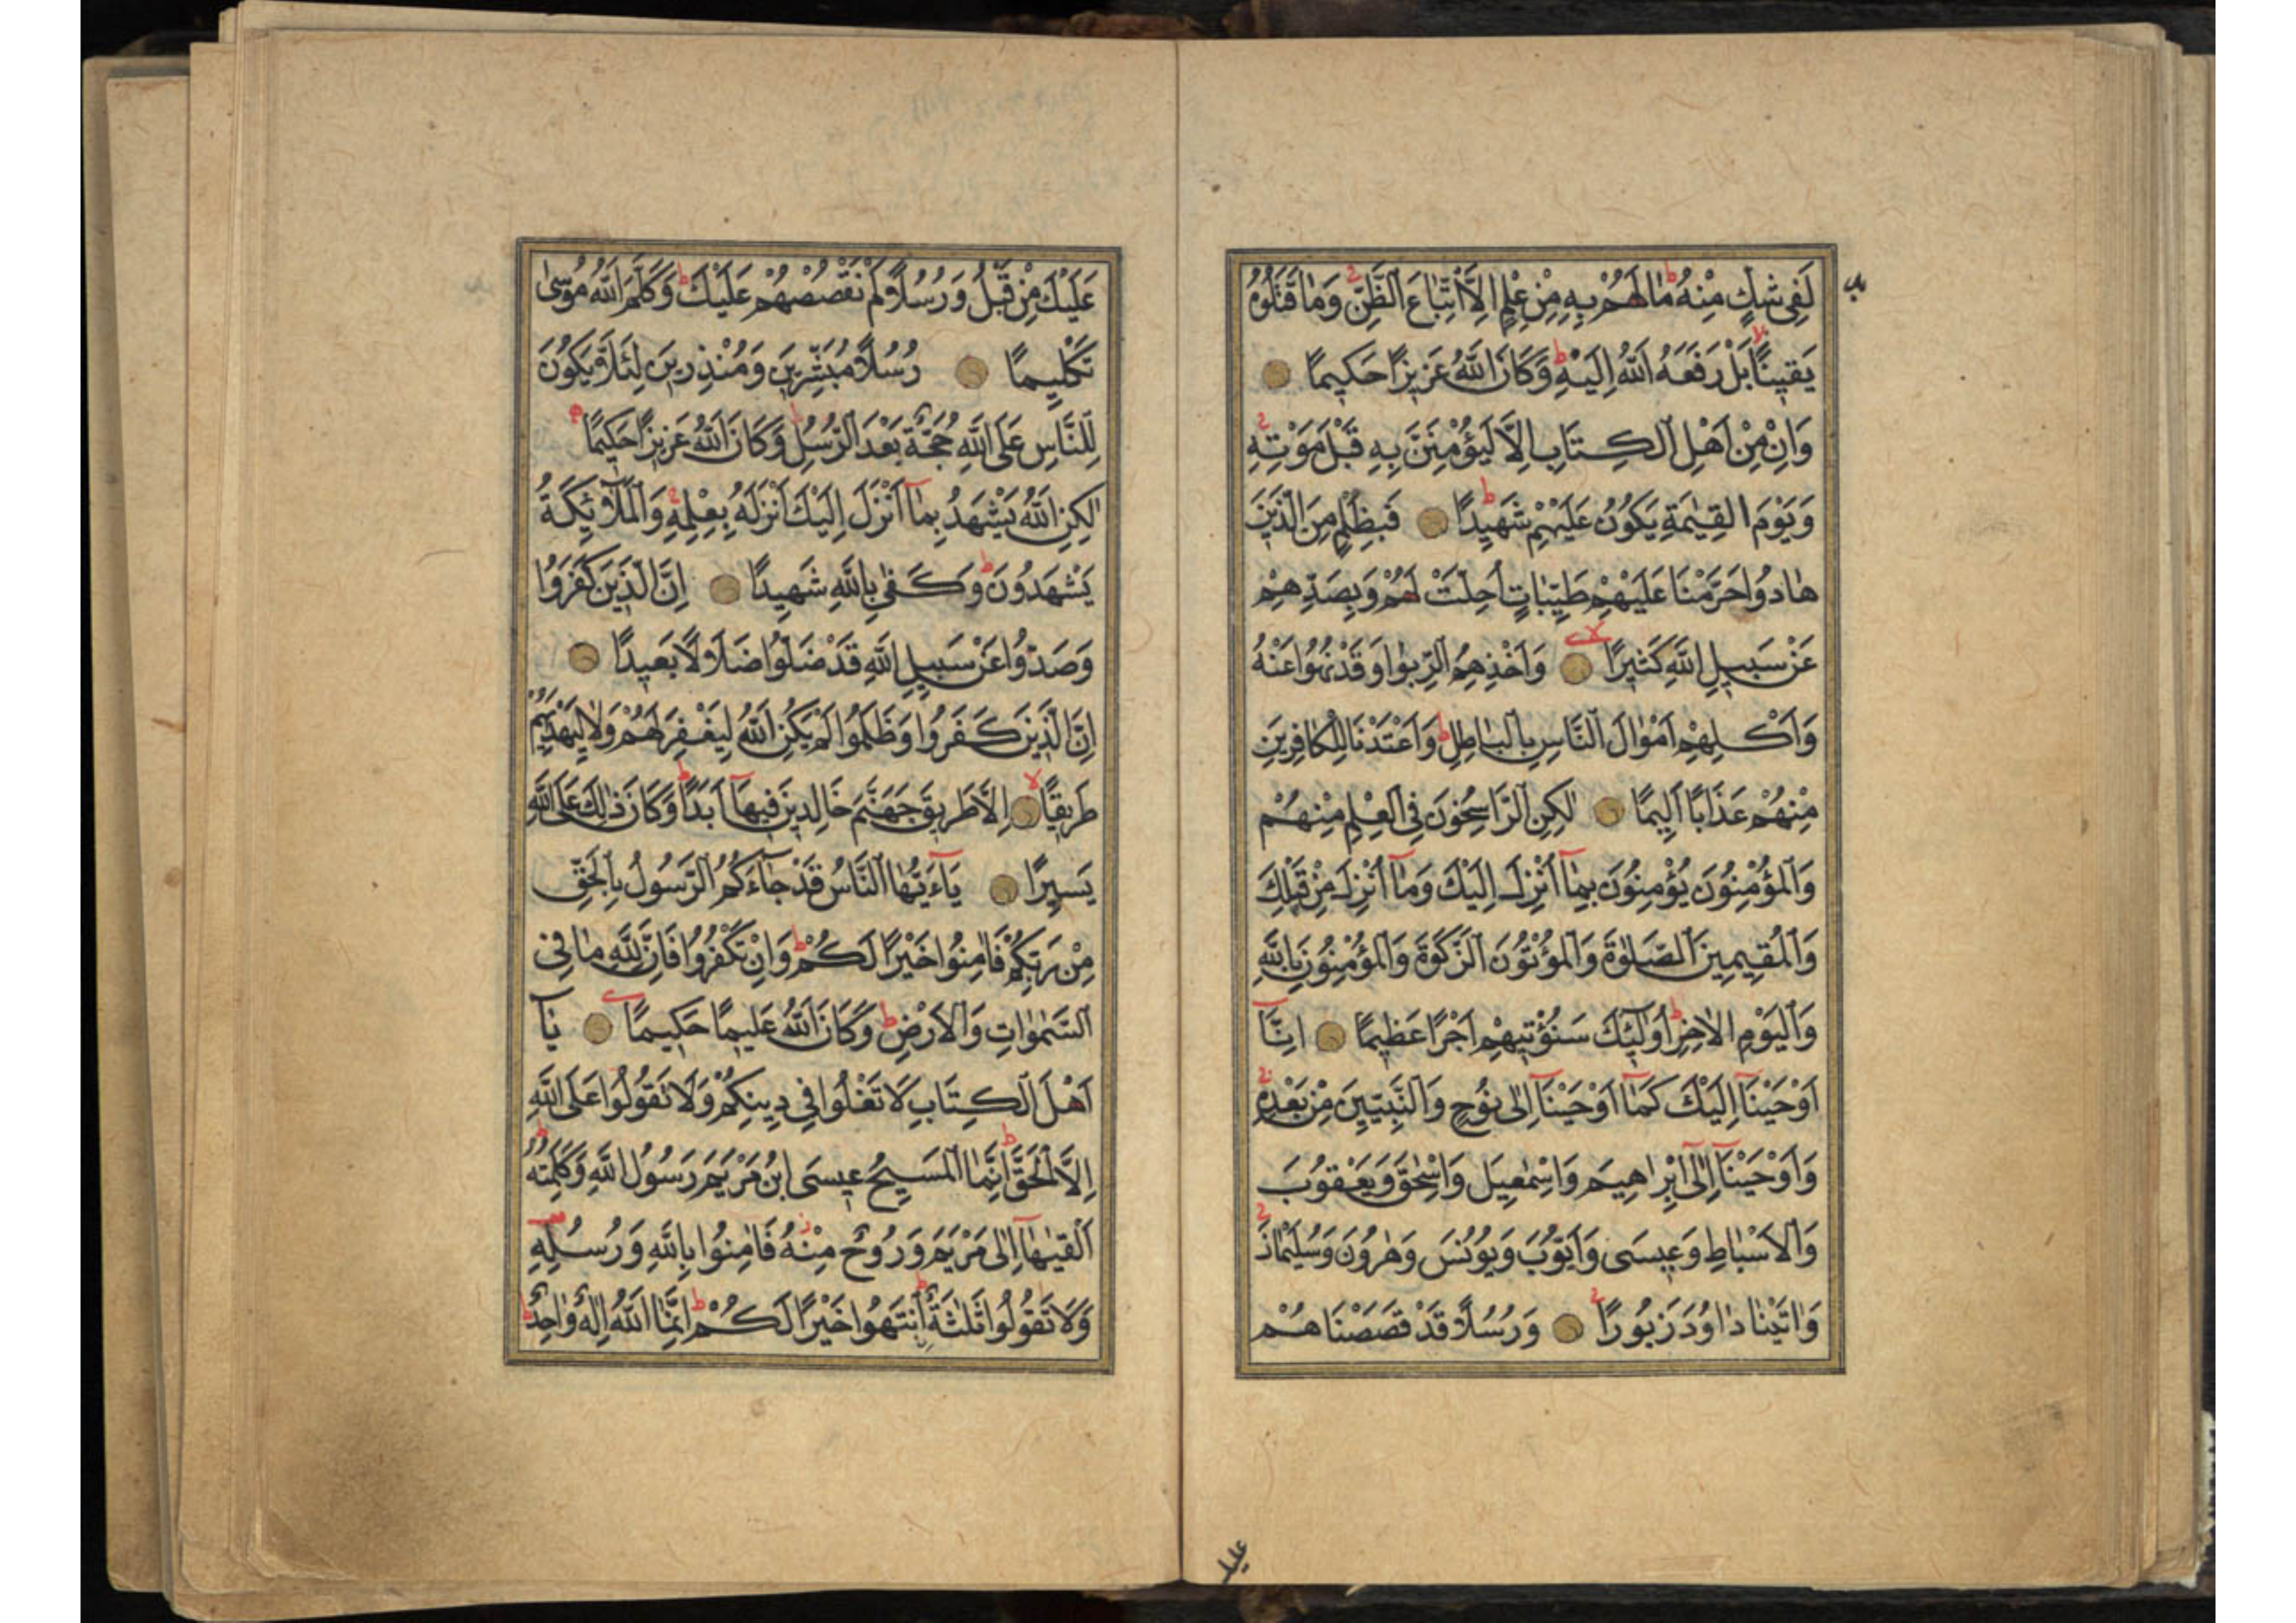 لَفِى شَكٍّ مِنْهُ مَا لَهُمْ بِهِ مِنْ عِلْمٍ اِلَّا اتِّبَاعَ الظَّنِّ وَمَا قَتَلُوهُ
يَقِينًا بَلْ رَفَعَهُ اللّٰهُ اِلَيْهِ وَكَانَ اللّٰهُ عَزِيزًا حَكِيمًا
وَاِنْ مِنْ اَهْلِ الْكِتَابِ اِلَّا لَيُؤْمِنَنَّ بِهِ قَبْلَ مَوْتِهِ
وَيَوْمَ الْقِيٰمَةِ يَكُونُ عَلَيْهِمْ شَهِيدًا فَبِظُلْمٍ مِنَ الَّذِينَ
هَادُوا حَرَّمْنَا عَلَيْهِمْ طَيِّبَاتٍ اُحِلَّتْ لَهُمْ وَبِصَدِّهِمْ
عَنْ سَبِيلِ اللّٰهِ كَثِيرًا وَاَخْذِهِمُ الرِّبٰوا وَقَدْ نُهُوا عَنْهُ
وَاَكْلِهِمْ اَمْوَالَ النَّاسِ بِالْبَاطِلِ وَاَعْتَدْنَا لِلْكَافِرِينَ
مِنْهُمْ عَذَابًا اَلِيمًا لٰكِنِ الرَّاسِخُونَ فِى الْعِلْمِ مِنْهُمْ
وَالْمُؤْمِنُونَ يُؤْمِنُونَ بِمَا اُنْزِلَ اِلَيْكَ وَمَا اُنْزِلَ مِنْ قَبْلِكَ
وَالْمُقِيمِينَ الصَّلٰوةَ وَالْمُؤْتُونَ الزَّكٰوةَ وَالْمُؤْمِنُونَ بِاللّٰهِ
وَالْيَوْمِ الْاٰخِرِ اُولٰئِكَ سَنُؤْتِيهِمْ اَجْرًا عَظِيمًا اِنَّا
اَوْحَيْنَا اِلَيْكَ كَمَا اَوْحَيْنَا اِلٰى نُوحٍ وَالنَّبِيِّينَ مِنْ بَعْدِهِ
وَاَوْحَيْنَا اِلٰى اِبْرَاهِيمَ وَاِسْمٰعِيلَ وَاِسْحٰقَ وَيَعْقُوبَ
وَالْاَسْبَاطِ وَعِيسَى وَاَيُّوبَ وَيُونُسَ وَهٰرُونَ وَسُلَيْمٰنَ
وَاٰتَيْنَا دَاوُدَ زَبُورًا وَرُسُلًا قَدْ قَصَصْنَاهُمْ
عليك
عَلَيْكَ مِنْ قَبْلُ وَرُسُلًا لَمْ نَقْصُصْهُمْ عَلَيْكَ وَكَلَّمَ اللّٰهُ مُوسٰى
تَكْلِيمًا رُسُلًا مُبَشِّرِينَ وَمُنْذِرِينَ لِئَلَّا يَكُونَ
لِلنَّاسِ عَلَى اللّٰهِ حُجَّةٌ بَعْدَ الرُّسُلِ وَكَانَ اللّٰهُ عَزِيزًا حَكِيمًا
لٰكِنِ اللّٰهُ يَشْهَدُ بِمَا اَنْزَلَ اِلَيْكَ اَنْزَلَهُ بِعِلْمِهِ وَالْمَلٰٓائِكَةُ
يَشْهَدُونَ وَكَفٰى بِاللّٰهِ شَهِيدًا اِنَّ الَّذِينَ كَفَرُوا
وَصَدُّوا عَنْ سَبِيلِ اللّٰهِ قَدْ ضَلُّوا ضَلَالًا بَعِيدًا
اِنَّ الَّذِينَ كَفَرُوا وَظَلَمُوا لَمْ يَكُنِ اللّٰهُ لِيَغْفِرَ لَهُمْ وَلَا لِيَهْدِيَهُمْ
طَرِيقًا اِلَّا طَرِيقَ جَهَنَّمَ خَالِدِينَ فِيهَا اَبَدًا وَكَانَ ذٰلِكَ عَلَى اللّٰهِ
يَسِيرًا يَاءَيُّهَا النَّاسُ قَدْ جَاءَكُمُ الرَّسُولُ بِالْحَقِّ
مِنْ رَبِّكُمْ فَاٰمِنُوا خَيْرًا لَكُمْ وَاِنْ تَكْفُرُوا فَاِنَّ لِلّٰهِ مَا فِى
السَّمٰوَاتِ وَالْاَرْضِ وَكَانَ اللّٰهُ عَلِيمًا حَكِيمًا يَا
اَهْلَ الْكِتَابِ لَا تَغْلُوا فِى دِينِكُمْ وَلَا تَقُولُوا عَلَى اللّٰهِ
اِلَّا الْحَقَّ اِنَّمَا الْمَسِيحُ عِيسَى ابْنُ مَرْيَمَ رَسُولُ اللّٰهِ وَكَلِمَتُهُ
اَلْقٰيهَا اِلٰى مَرْيَمَ وَرُوحٌ مِنْهُ فَاٰمِنُوا بِاللّٰهِ وَرُسُلِهِ
وَلَا تَقُولُوا ثَلٰثَةٌ اِنْتَهُوا خَيْرًا لَكُمْ اِنَّمَا اللّٰهُ اِلٰهٌ وَاحِدٌ